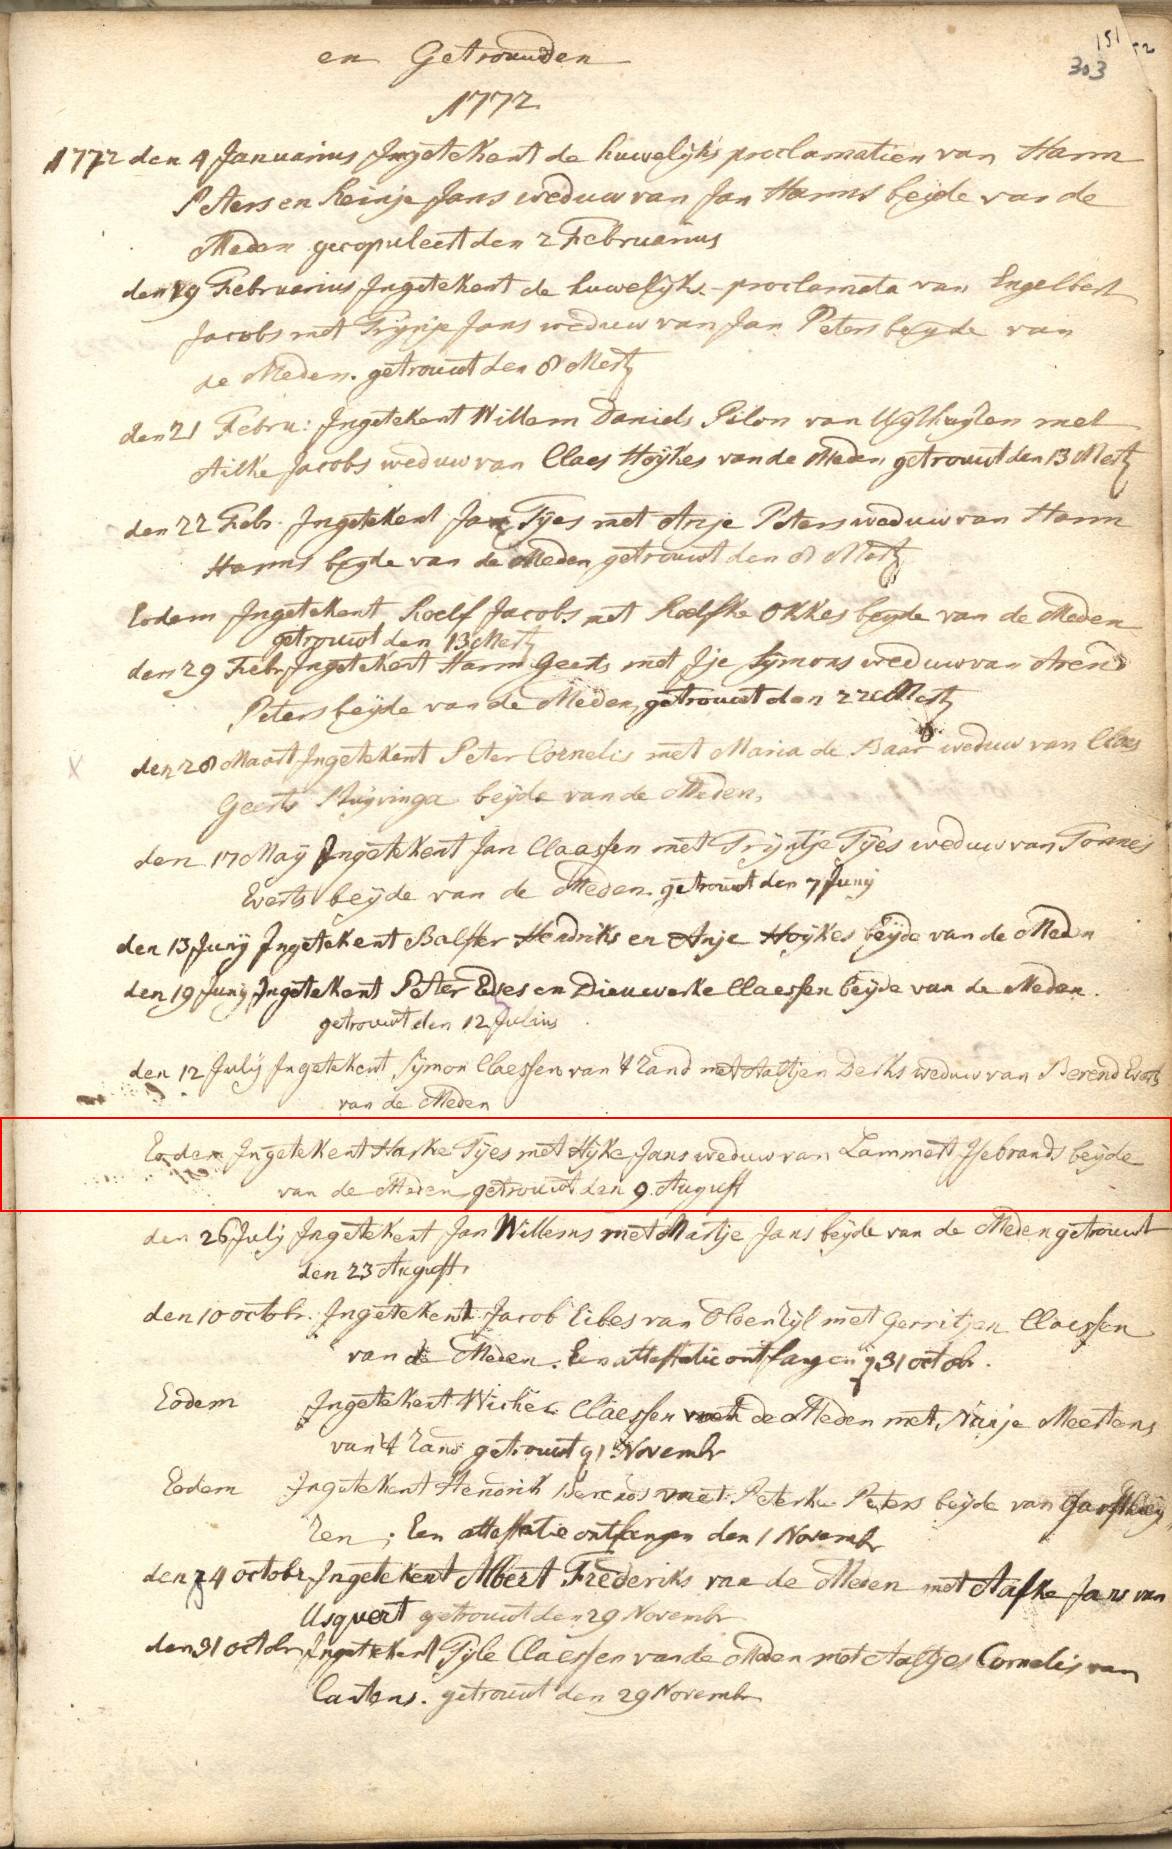 en Getrouwden
151 52
303
1772
1772 den 4 Januarius Ingetekent de huwelijks proclamatien van Harm
Peters en Reinje Jans weduw van Jan Harms beyde van de
Meden gecopuleert den 2 Februarius
den 19 Februarius Ingetekent de huwelijks-proclamata van Engelbert
Jacobs met Trijnje Jans weduw van Jan Peters beyde van
de Meden. getrouwt den 8 Mertz
den 21 Febru: Ingetekent Willem Daniels Pilon van met
Ailke Jacobs weduw van Claes Hoykes van de Meden getrouwt den 13 Mertz
den 22 Febr. Ingetekent Jan Tyes met Anje Peters weduw van Harm
Harms beyde van de Meden getrouwt den 8 Mertz
Eodem Ingetekent Roelf Jacobs met Roelfke Okkes beyde van de Meden
getrouwt den 13 Mertz
den 29 Febr Ingetekent Harm Geerts met Ije Sijmons weduw van Arend
Peters beyde van de Meden, getrouwt den 22 Mertz
X den 28 Maart Ingetekent Peter Cornelis met Maria de Baar weduw van Claes
Geerts beyde van de Meden,
den 17 May Ingetekent Jan Claassen met Trijntje Tyes weduw van Tonnes
Everts beyde van de Meden. getrouwt den 7 Junij
den 13 Junij Ingetekent Balster Hendriks en Anje Hoykes beyde van de Meden
den 19 Junij Ingetekent Peter Edses en Dieuwerke Claessen beyde van de Meden.
getrouwt den 12 Julius
den 12 Julij Ingetekent, Sijmon Claessen van 't Zand met Aaltjen Derks weduw van Berend Everts
van de Meden
Eodem Ingetekent Harke Tyes met Hyke Jans weduw van Lammert Ysebrands beyde
van de Meden getrouwt den 9. August
den 26 Julij Ingetekent Jan Willems met Martje Jans beyde van de Meden getrouwt
den 23 August.
den 10 octobr. Ingetekent Jacob Eibes van Oldenzijl met Gerritjen Claessen
van de Meden. Een attestatie ontfangen 31 octobr.
Eodem Ingetekent Wicher Claessen van de Meden met Nanje Meertens
van 't Zand getrouwt 1 Novembr
Eodem Ingetekent Hendrik Berends met Peterke Peters beyde van Garsthuy
zen; Een attestatie ontfangen den 1 Novembr
den 24 octobr Ingetekent Albert Frederiks van de Meden met Aafke Jans van
Usquert getrouwt den 29 Novembr
den 31 octobr Ingetekent Tyle Claessen van de Meden met Aaltjes Cornelis van
Cantens. getrouwt den 29 Novembr